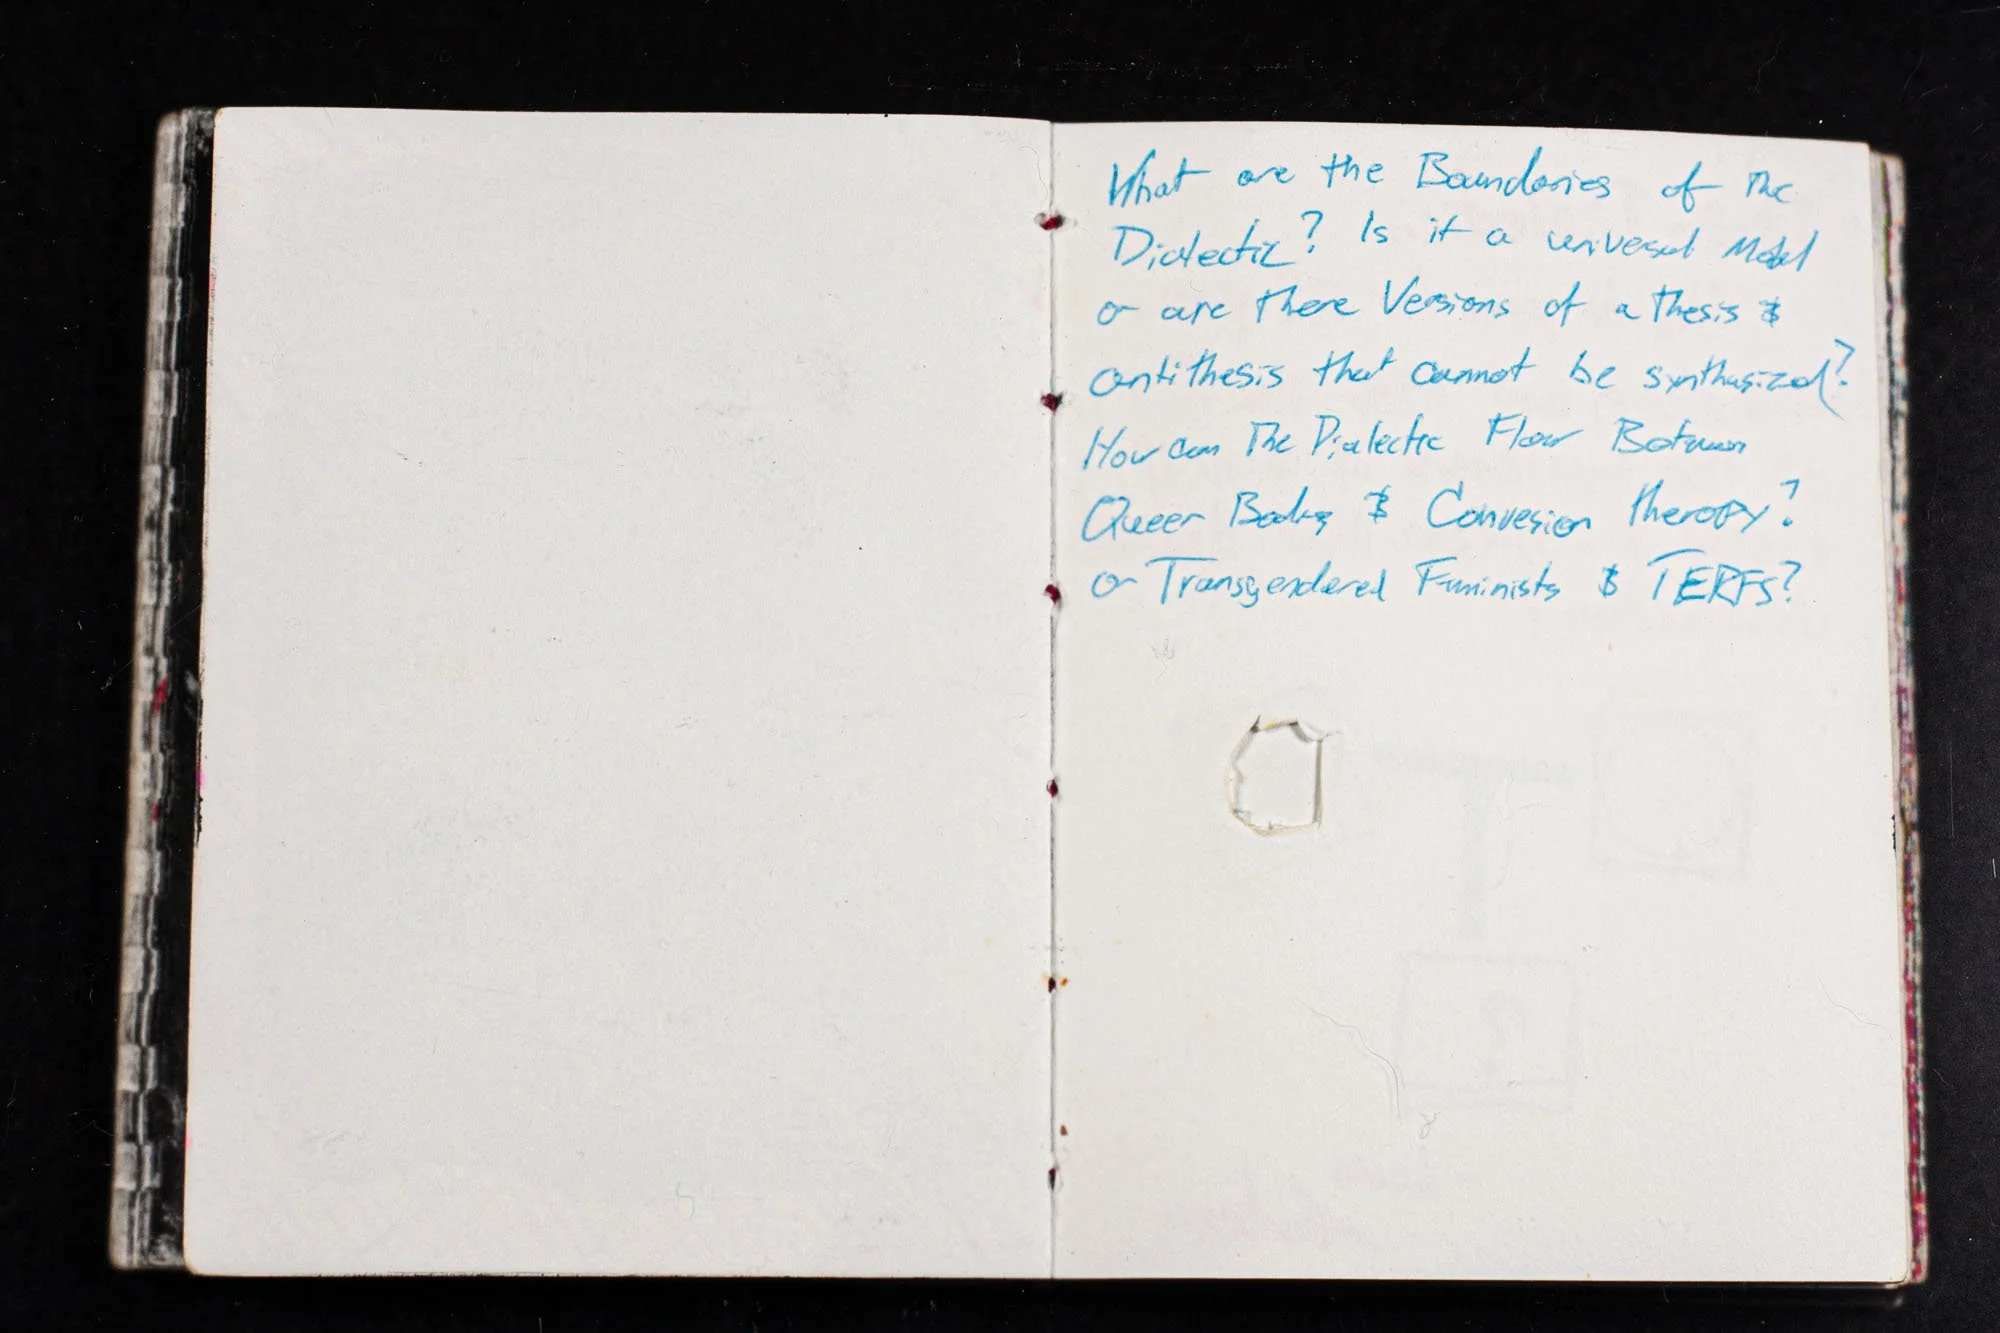 What are the Boundaries of the
Dialectic? Is it a universal Model
or are there Versions of a thesis &
antithesis that cannot be synthasized?
How can The Dialectic Flow Between
Queer Bodies & Convesion therapy?
or Transgendered Feminists & TERFs?